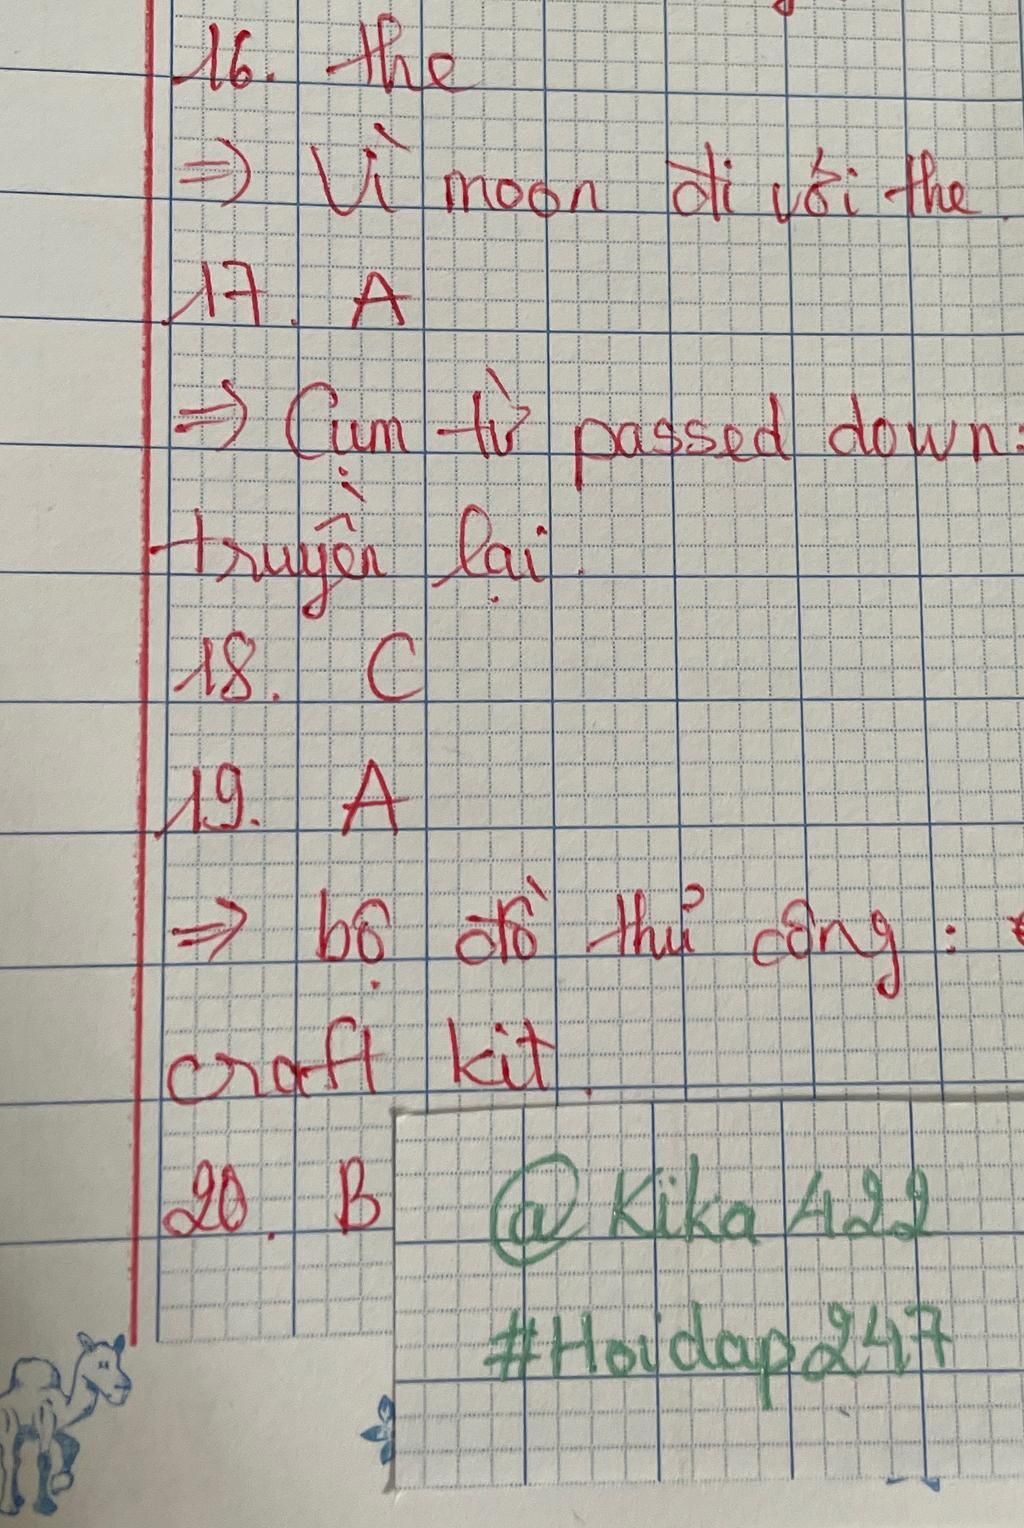 16. the
=> Vì moon đi với the.
17. A
=> Cụm từ passed down:
truyền lại.
18. C
19. A
=> bộ đồ thủ công :
craft kit.
20. B
@Kika422
#Hoidap247